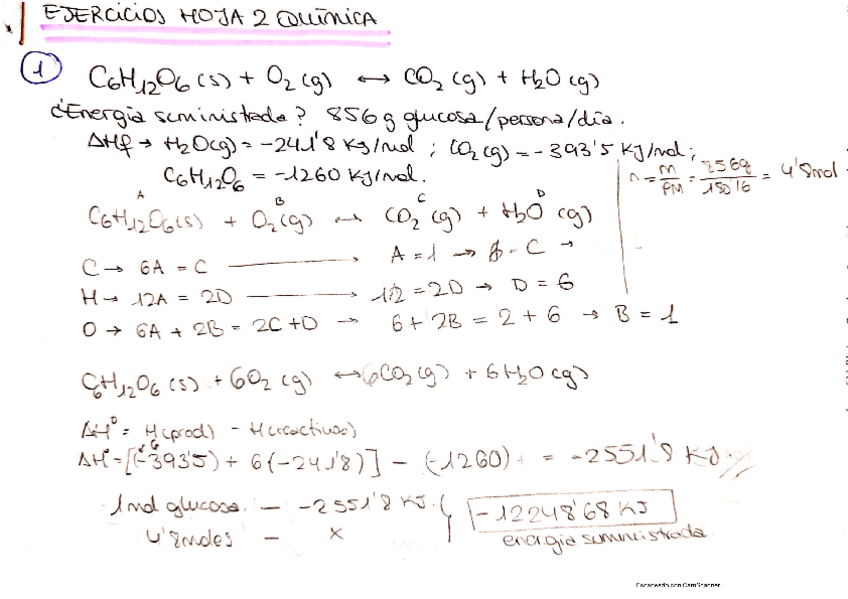 EJERCICIOS HOJA 2 QUÍMICA
1 C6H12O6 (s) + O2 (g) ↔ CO2 (g) + H2O (g)
¿Energía suministrada? 856 g glucosa/persona/día.
ΔHf → H2O(g) = -241'8 KJ/mol ; CO2 (g) = -393'5 KJ/mol;
C6H12O6 = -1260 KJ/mol.
n = m/PM = 856g/180'16 = 4'8mol
A B C D
C6H12O6(s) + O2 (g) ↔ CO2 (g) + H2O (g)
C → 6A = C → A = 1 → C →
H → 12A = 2D → 12 = 2D → D = 6
O → 6A + 2B = 2C + D → 6 + 2B = 2 + 6 → B = 1
C6H12O6 (s) + 6O2 (g) ↔ 6CO2 (g) + 6H2O (g)
ΔH° = H(prod) - H(reactivos)
ΔH° = [6(-393'5) + 6(-241'8)] - (-1260) = -2551'8 KJ.
1mol glucosa. — -2551'8 KJ. -12248'68 KJ
4'8moles — x energía suministrada.
Escaneado con CamScanner